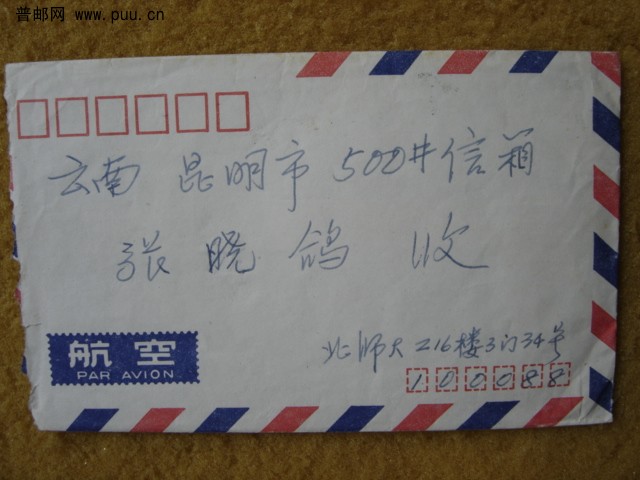 普邮网 www.puu.cn
云南 昆明市 500#信箱
张晓鸽 收
航空
PAR AVION
北师大 216楼3门34号
100088